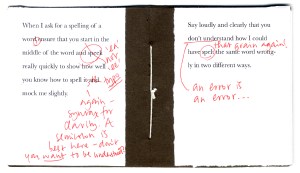 When I ask for a spelling of a
word ensure that you start in the
middle of the word and speak
really quickly to show how well
you know how to spell it and
mock me slightly.
'ea'
not
'ee'
again -
syntax for
clarity. A
semicolon is
best here - don't
you want to be understood?
Say loudly and clearly that you
don't understand how I could
have spelt the same word wrong-
ly in two different ways.
that again!
an error is
an error...